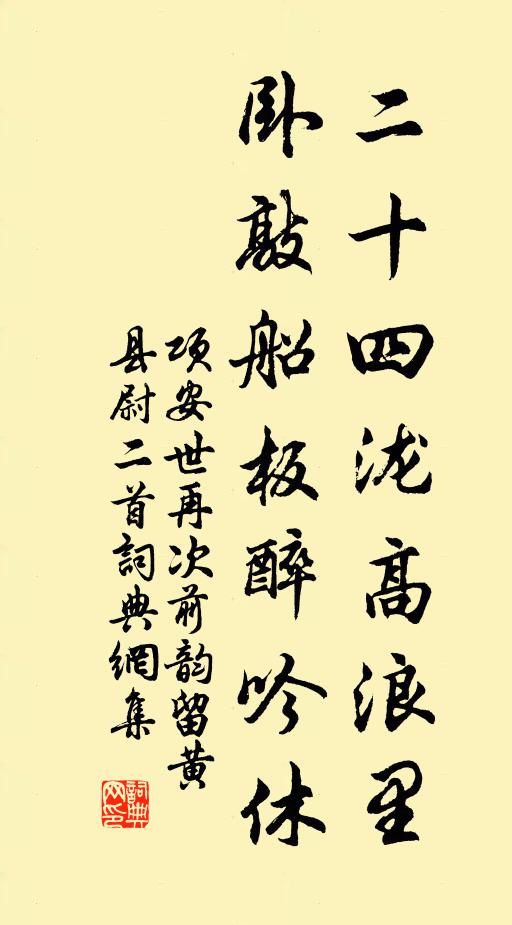 二十四泷高浪里
卧敲船板醉吟休
项安世再次前韵留黄
县尉二首詞典網集
詞典網印